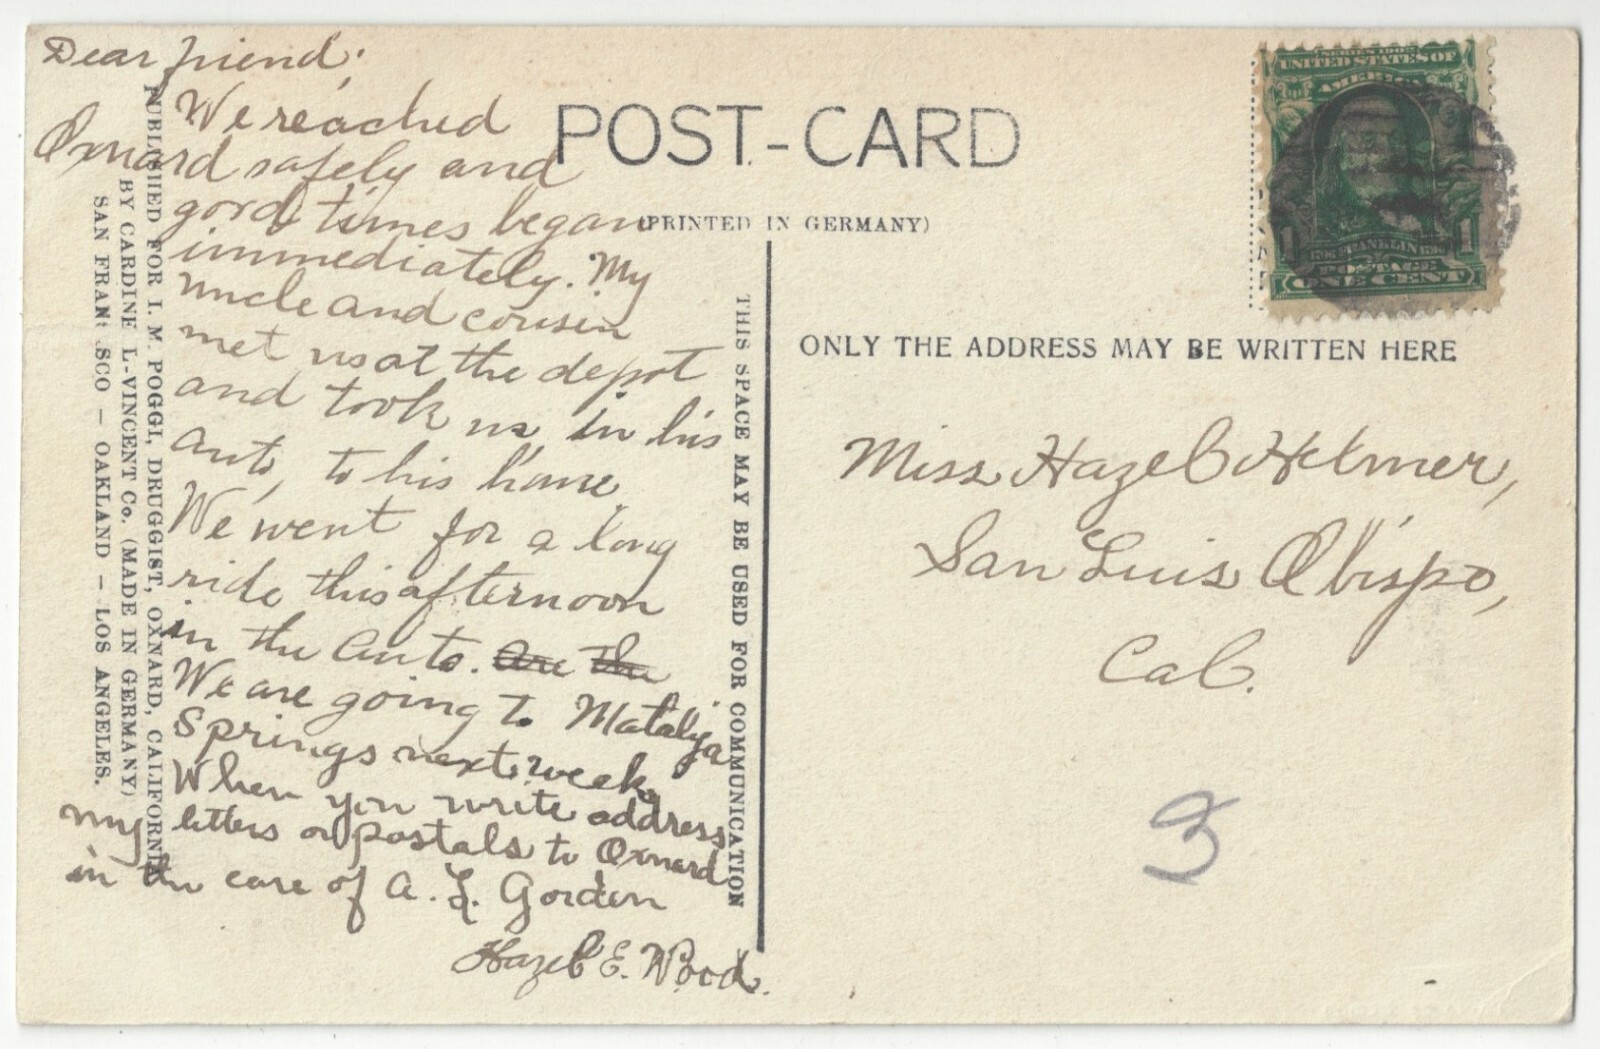 Dear friend:
We reached
Oxnard safely and
good times began
immediately. My
uncle and cousin
met us at the depot
and took us in his
auto, to his home.
We went for a long
ride this afternoon
in the auto. are the
We are going to Matalija
Springs next week.
When you write address
my letters or postals to Oxnard
in the care of A. L. Gorden
Hazel E. Wood.
PUBLISHED FOR I. M. POGGI, DRUGGIST, OXNARD, CALIFORNIA
BY CARDINE L-VINCENT Co. (MADE IN GERMANY)
SAN FRAN SCO — OAKLAND — LOS ANGELES.
POST-CARD
(PRINTED IN GERMANY)
THIS SPACE MAY BE USED FOR COMMUNICATION
SERIES 1902
UNITED STATES OF
AMERICA
1 FRANKLIN 1
POSTAGE
ONE CENT
ONLY THE ADDRESS MAY BE WRITTEN HERE
Miss Hazel Helmer,
San Luis Obispo,
Cal.
3